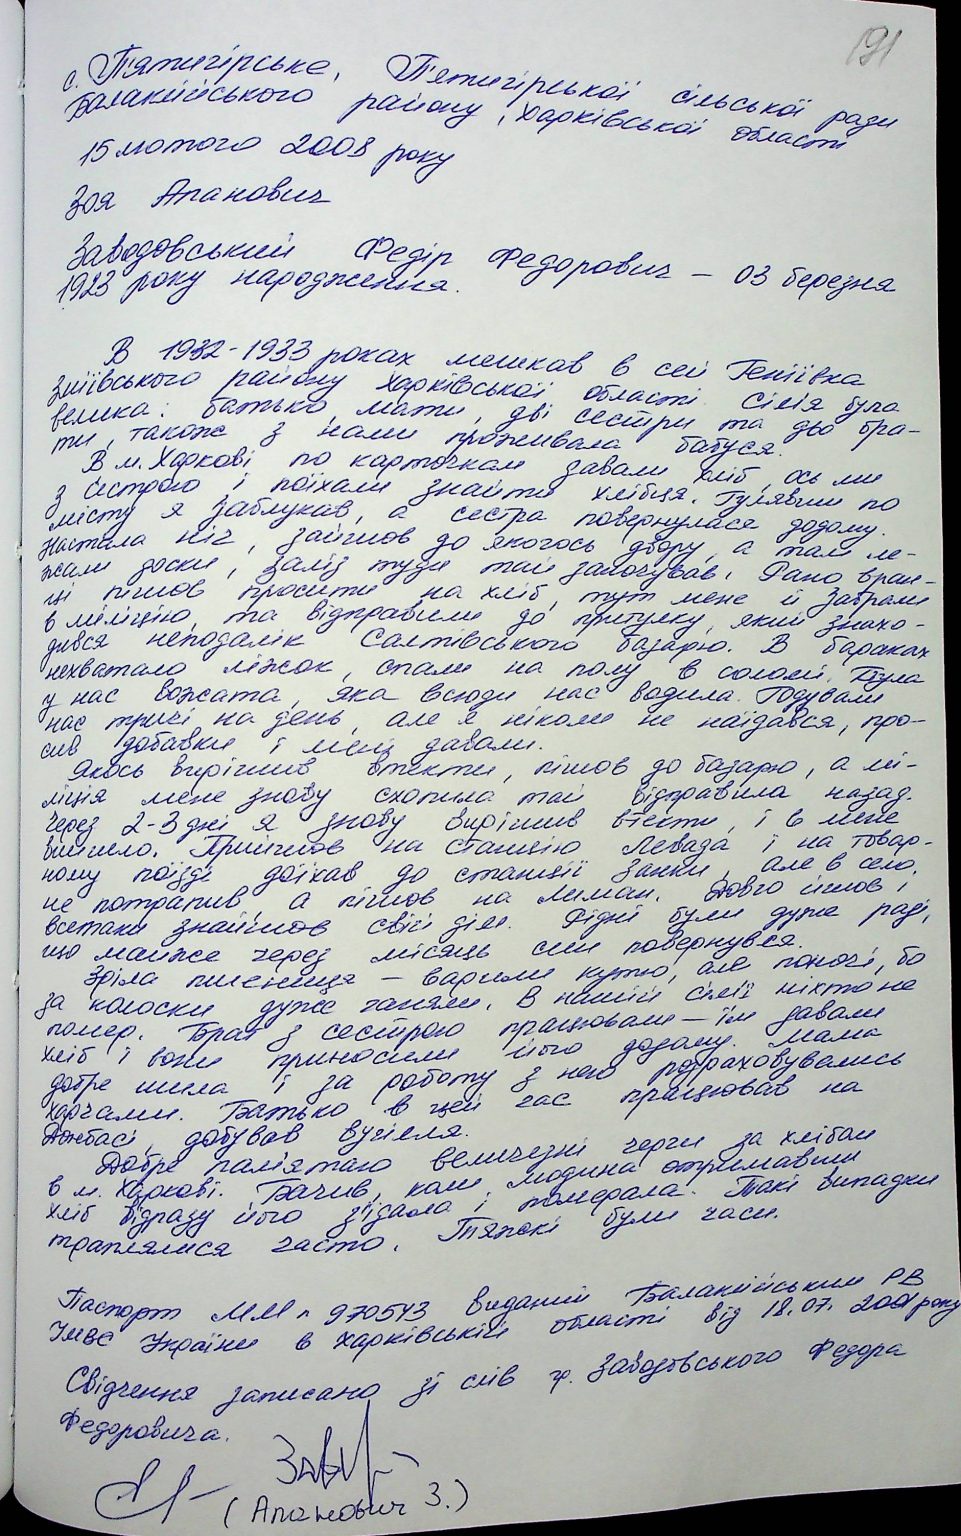 191
с. П'ятигірське, П'ятигірської сільської ради
Балаклійського району, Харківської області
15 лютого 2008 року
Зоя Апанович
Заводовський Федір Федорович – 03 березня
1923 року народження.
В 1932-1933 роках мешкав в селі Геніївка
Зміївського району Харківської області. Сім'я була
велика: батько, мати, дві сестри та два бра-
ти, також з нами проживала бабуся.
В м. Харкові по карточкам давали хліб, ось ми
з сестрою і поїхали знайти хлібця. Гулявши по
місту я заблукав, а сестра повернулася додому.
Настала ніч, зайшов до якогось двору, а там ле-
жали доски, заліз туди тай заночував. Рано вран-
ці пішов просити на хліб, тут мене й забрали
в міліцію, та відправили до притулку, який знахо-
дився неподалік Салтівського базарю. В бараках
нехватало ліжок, спали на полу в соломі. Була
у нас вожата, яка всюди нас водила. Годували
нас тричі на день, але я ніколи не наїдався, про-
сив добавки і мені давали.
Якось вирішив втекти, пішов до базарю, а мі-
ліція мене знову схопила тай відправила назад.
Через 2-3 дні я знову вирішив втекти, і в мене
вийшло. Прийшов на станцію Левада і на товар-
ному поїзді доїхав до станції Занки, але в село
не потрапив, а пішов на Лиман. Довго йшов і
всетаки знайшов свій дім. Рідні були дуже раді,
що майже через місяць син повернувся.
Зріла пшениця – варили кутю, але поночі, бо
за колоски дуже ганяли. В нашій сім'ї ніхто не
помер. Брат з сестрою працювали – їм давали
хліб і вони приносили його додому. Мама
добре шила і за роботу з нею розраховувались
харчами. Батько в цей час працював на
Донбасі, добував вугілля.
Добре пам'ятаю величезні черги за хлібом
в м. Харкові. Бачив, коли людина отримавши
хліб відразу його з'їдала і помирала. Такі випадки
траплялися часто. Тяжкі були часи.
Паспорт ММ № 970543 виданий Балаклійським РВ
УМВС України в Харківській області від 18.07. 2001 року
Свідчення записано зі слів гр. Заводовського Федора
Федоровича.
(Апанович З.)